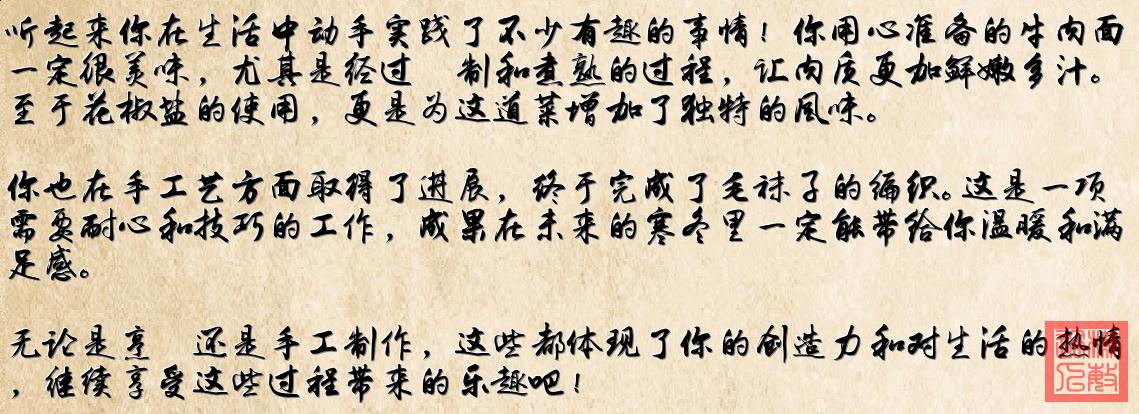 听起来你在生活中动手实践了不少有趣的事情！你用心准备的牛肉面
一定很美味，尤其是经过 制和煮熟的过程，让肉质更加鲜嫩多汁。
至于花椒盐的使用，更是为这道菜增加了独特的风味。
你也在手工艺方面取得了进展，终于完成了毛袜子的编织。这是一项
需要耐心和技巧的工作，成果在未来的寒冬里一定能带给你温暖和满
足感。
无论是烹 还是手工制作，这些都体现了你的创造力和对生活的热情
，继续享受这些过程带来的乐趣吧！